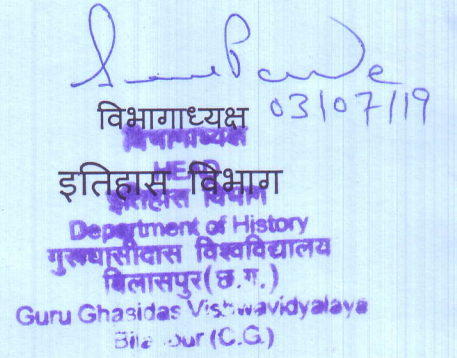 03/07/19
विभागाध्यक्ष
विभागाध्यक्ष
HEAD
इतिहास विभाग
इतिहास विभाग
Department of History
गुरूघासीदास विश्वविद्यालय
बिलासपुर (छ.ग.)
Guru Ghasidas Vishwavidyalaya
Bilaspur (C.G.)